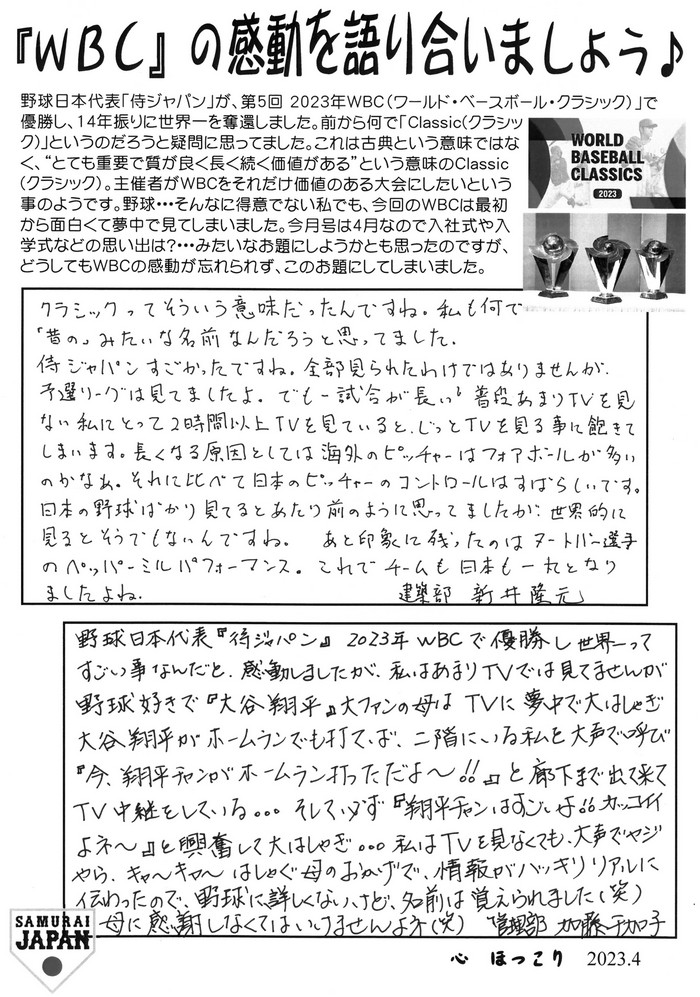 『WBC』の感動を語り合いましょう♪
野球日本代表「侍ジャパン」が、第5回 2023年WBC(ワールド・ベースボール・クラシック)」で
優勝し、14年振りに世界一を奪還しました。前から何で「Classic(クラシッ
ク)」というのだろうと疑問に思ってました。これは古典という意味ではな
く、“とても重要で質が良く長く続く価値がある”という意味のClassic
(クラシック)。主催者がWBCをそれだけ価値のある大会にしたいという
事のようです。野球・・・そんなに得意でない私でも、今回のWBCは最初
から面白くて夢中で見てしまいました。今月号は4月なので入社式や入
学式などの思い出は?・・・みたいなお題にしようかとも思ったのですが、
どうしてもWBCの感動が忘れられず、このお題にしてしまいました。
WORLD
BASEBALL
CLASSICS
2023
クラシックってそういう意味だったんですね。私も何で
「昔の」みたいな名前なんだろうと思ってました.
侍ジャパンすごかったですね。全部見られたわけではありませんが、
予選リーグは見てましたよ。でも一試合が長い。普段あまりTVを見
ない私にとって2時間以上TVを見ていると、じっとTVを見る事に飽きて
しまいます。長くなる原因としては海外のピッチャーはフォアボールが多い
のかなぁ。それに比べて日本のピッチャーのコントロールはすばらしいです。
日本の野球ばかり見てるとあたり前のように思ってましたが、世界的に
見るとそうでもないんですね。 あと印象に残ったのはヌートバー選手
のペッパーミルパフォーマンス。これでチームも日本も一丸となり
ましたよね. 建築部 新井隆元
野球日本代表『侍ジャパン』2023年WBCで優勝し世界一って
すごい事なんだと、感動しましたが、私はあまりTVでは見てませんが
野球好きで『大谷翔平』大ファンの母はTVに夢中で大はしゃぎ
大谷翔平がホームランでも打てば、二階にいる私を大声で呼び
『今、翔平チャンがホームラン打っただよ〜!!』と廊下まで出て来て
TV中継をしている。。。そして必ず『翔平チャンはすごいよ!!カッコイイ
よネ〜』と興奮して大はしゃぎ。。。私はTVを見なくても、大声でヤジ
やら、キャ〜キャ〜はしゃぐ母のおかげで、情報がハッキリリアルに
伝わったので、野球に詳しくないけど、名前は覚えられました(笑)
母に感謝しなくてはいけませんよネ(笑) 管理部 加藤千加子
SAMURAI
JAPAN
心 ほっこり 2023.4